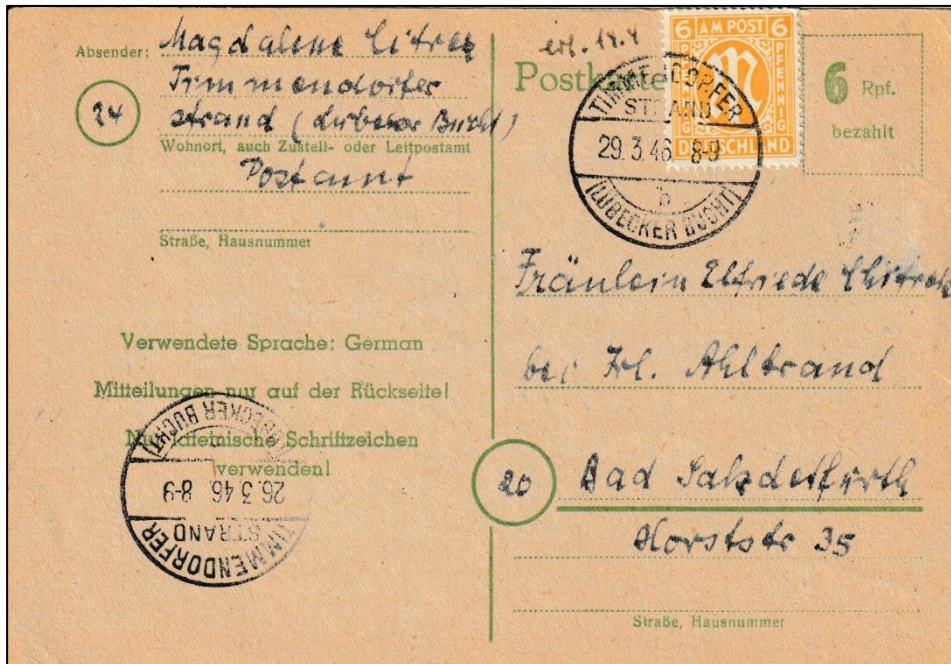 Absender: Magdalene
Timmendorfer
24
strand (Lübecker Bucht)
Wohnort, auch Zustell- oder Leitpostamt
Postamt
Straße, Hausnummer
Verwendete Sprache: German
Mitteilungen nur auf der Rückseite!
Nur lateinische Schriftzeichen
verwenden!
TIMMENDORFER
STRAND
26.3.46 8-9
(LÜBECKER BUCHT)
erl. 14.4
Postkarte
6 AM POST 6
PFENNIG PFENNIG
M
DEUTSCHLAND
6 Rpf.
bezahlt
TIMMENDORFER
STRAND
29.3.46 8-9
b
(LÜBECKER BUCHT)
Fräulein Elfriede
bei Frl. Ahltrand
20 Bad Salzdetfurth
Horststr 35
Straße, Hausnummer